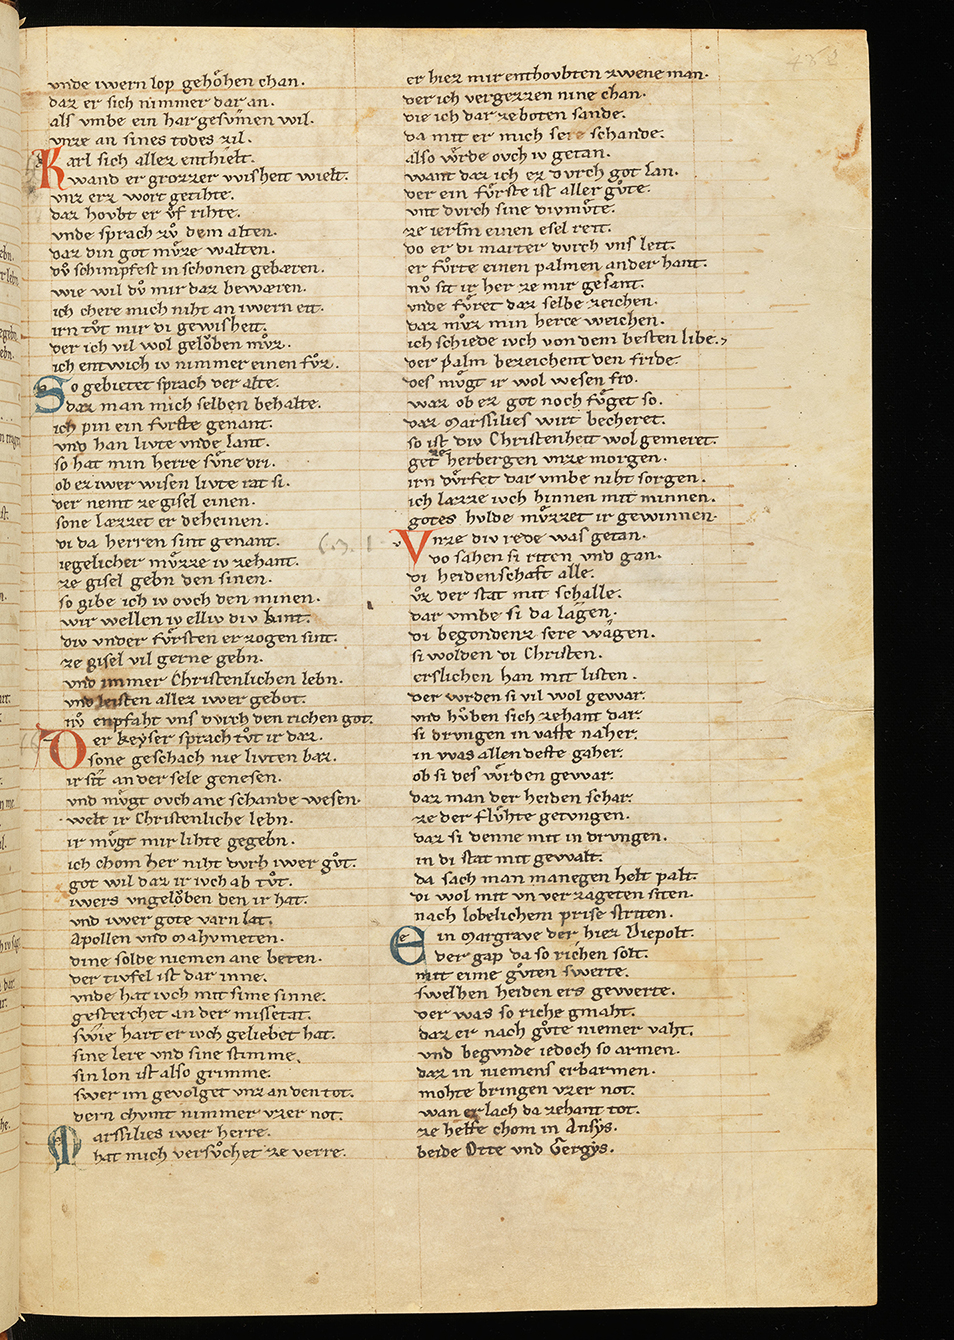 vnde iwern lop gehohen chan.
daz er sich nimmer dar an.
als vmbe ein har gesvmen wil.
vnze an sines todes zil.
Karl sich allez enthielt.
wand er grozzer wisheit wielt.
vnz erz wort getihte.
daz hovbt er vf rihte.
vnde sprach zv dem alten.
daz din got mvze walten.
dv schimpfest in schonen gebæren.
wie wil dv mir daz bewæren.
ich chere mich niht an iwern eit.
irn tvt mir di gewisheit.
der ich vil wol geloben mvz.
ich entwich iv nimmer einen fvz.
So gebietet sprach der alte.
daz man mich selben behalte.
ich pin ein furste genant.
vnd han livte vnde lant.
so hat min herre svne dri.
ob ez iwer wisen livte rat si.
der nemt ze gisel einen.
sone læzzet er deheinen.
di da herren sint genant.
iegelicher mvzze iv zehant.
ze gisel gebn den sinen.
so gibe ich iv ovch den minen.
wir wellen iv elliv div kint.
div vnder fvrsten erzogen sint.
ze gisel vil gerne gebn.
vnd immer Christenlichen lebn.
vnd leisten allez iwer gebot.
nv enpfaht vns dvrch den richen got.
Der keyser sprach tvt ir daz.
sone geschach nie livten baz.
ir sit an der sele genesen.
vnd mvgt ovch ane schande wesen.
welt ir Christenliche lebn.
ir mvgt mir lihte gegebn.
ich chom her niht dvrh iwer gvt.
got wil daz ir ivch ab tvt.
iwers vngelouben den ir hat.
vnd iwer gote varn lat.
Apollen vnd Mahvmeten.
dine solde niemen ane beten.
der tivfel ist dar inne.
vnde hat ivch mit sime sinne.
gesterchet an der missetat.
swie hart er ivch geliebet hat.
sine lere vnd sine stimme.
sin lon ist also grimme.
swer im gevolget vnz an den tot.
dern chvmt nimmer vzer not.
Marssilies iwer herre.
hat mich versvchet ze verre.
er hiez mir enthovbten zwene man.
der ich vergezzen nine chan.
die ich dar ze boten sande.
da mit er mich sere schande.
also wrde ovch iv getan.
want daz ich ez dvrch got lan.
der ein fvrste ist aller gvte.
vnt dvrch sine divmvte.
ze ierlm einen esel reit.
do er di marter dvrch vns leit.
er fvrte einen palmen an der hant.
nv sit ir her ze mir gesant.
vnde fvret daz selbe zeichen.
daz mvz min herce weichen.
ich schiede ivch von dem besten libe.
der palm bezeichent den fride.
des mvgt ir wol wesen fro.
waz ob ez got noch fvget so.
daz Marssilies wirt becheret.
so ist div Christenheit wol gemeret.
get ze herbergen vnze morgen.
irn dvrfet dar vmbe niht sorgen.
ich lazze ivch hinnen mit minnen.
gotes hvlde mvzzet ir gewinnen.
Vnze div rede was getan.
do sahen si riten vnd gan.
di heidenschaft alle.
vz der stat mit schalle.
dar vmbe si da lagen.
di begondenz sere wagen.
si wolden di Christen.
erslichen han mit listen.
der wrden si vil wol gewar.
vnd hvben sich zehant dar.
si drvngen in vaste naher.
in was allen deste gaher.
ob si des wrden gewar.
daz man der heiden schar.
ze der flvhte getvngen.
daz si denne mit in drvngen.
in di stat mit gewalt.
da sach man manegen helt palt.
di wol mit vnverzageten siten.
nach lobelichem prise striten.
Ein Margrave der hiez Diepolt.
der gap da so richen solt.
mit eime gvten swerte.
swelhen heiden ers gewerte.
der was so riche gmaht.
daz er nach gvte niemer vaht.
vnd begvnde iedoch so armen.
daz in niemens erbarmen.
mohte bringen vzer not.
wan er lach da zehant tot.
ze helfe chom in Ansys.
beide Otte vnd Gergys.